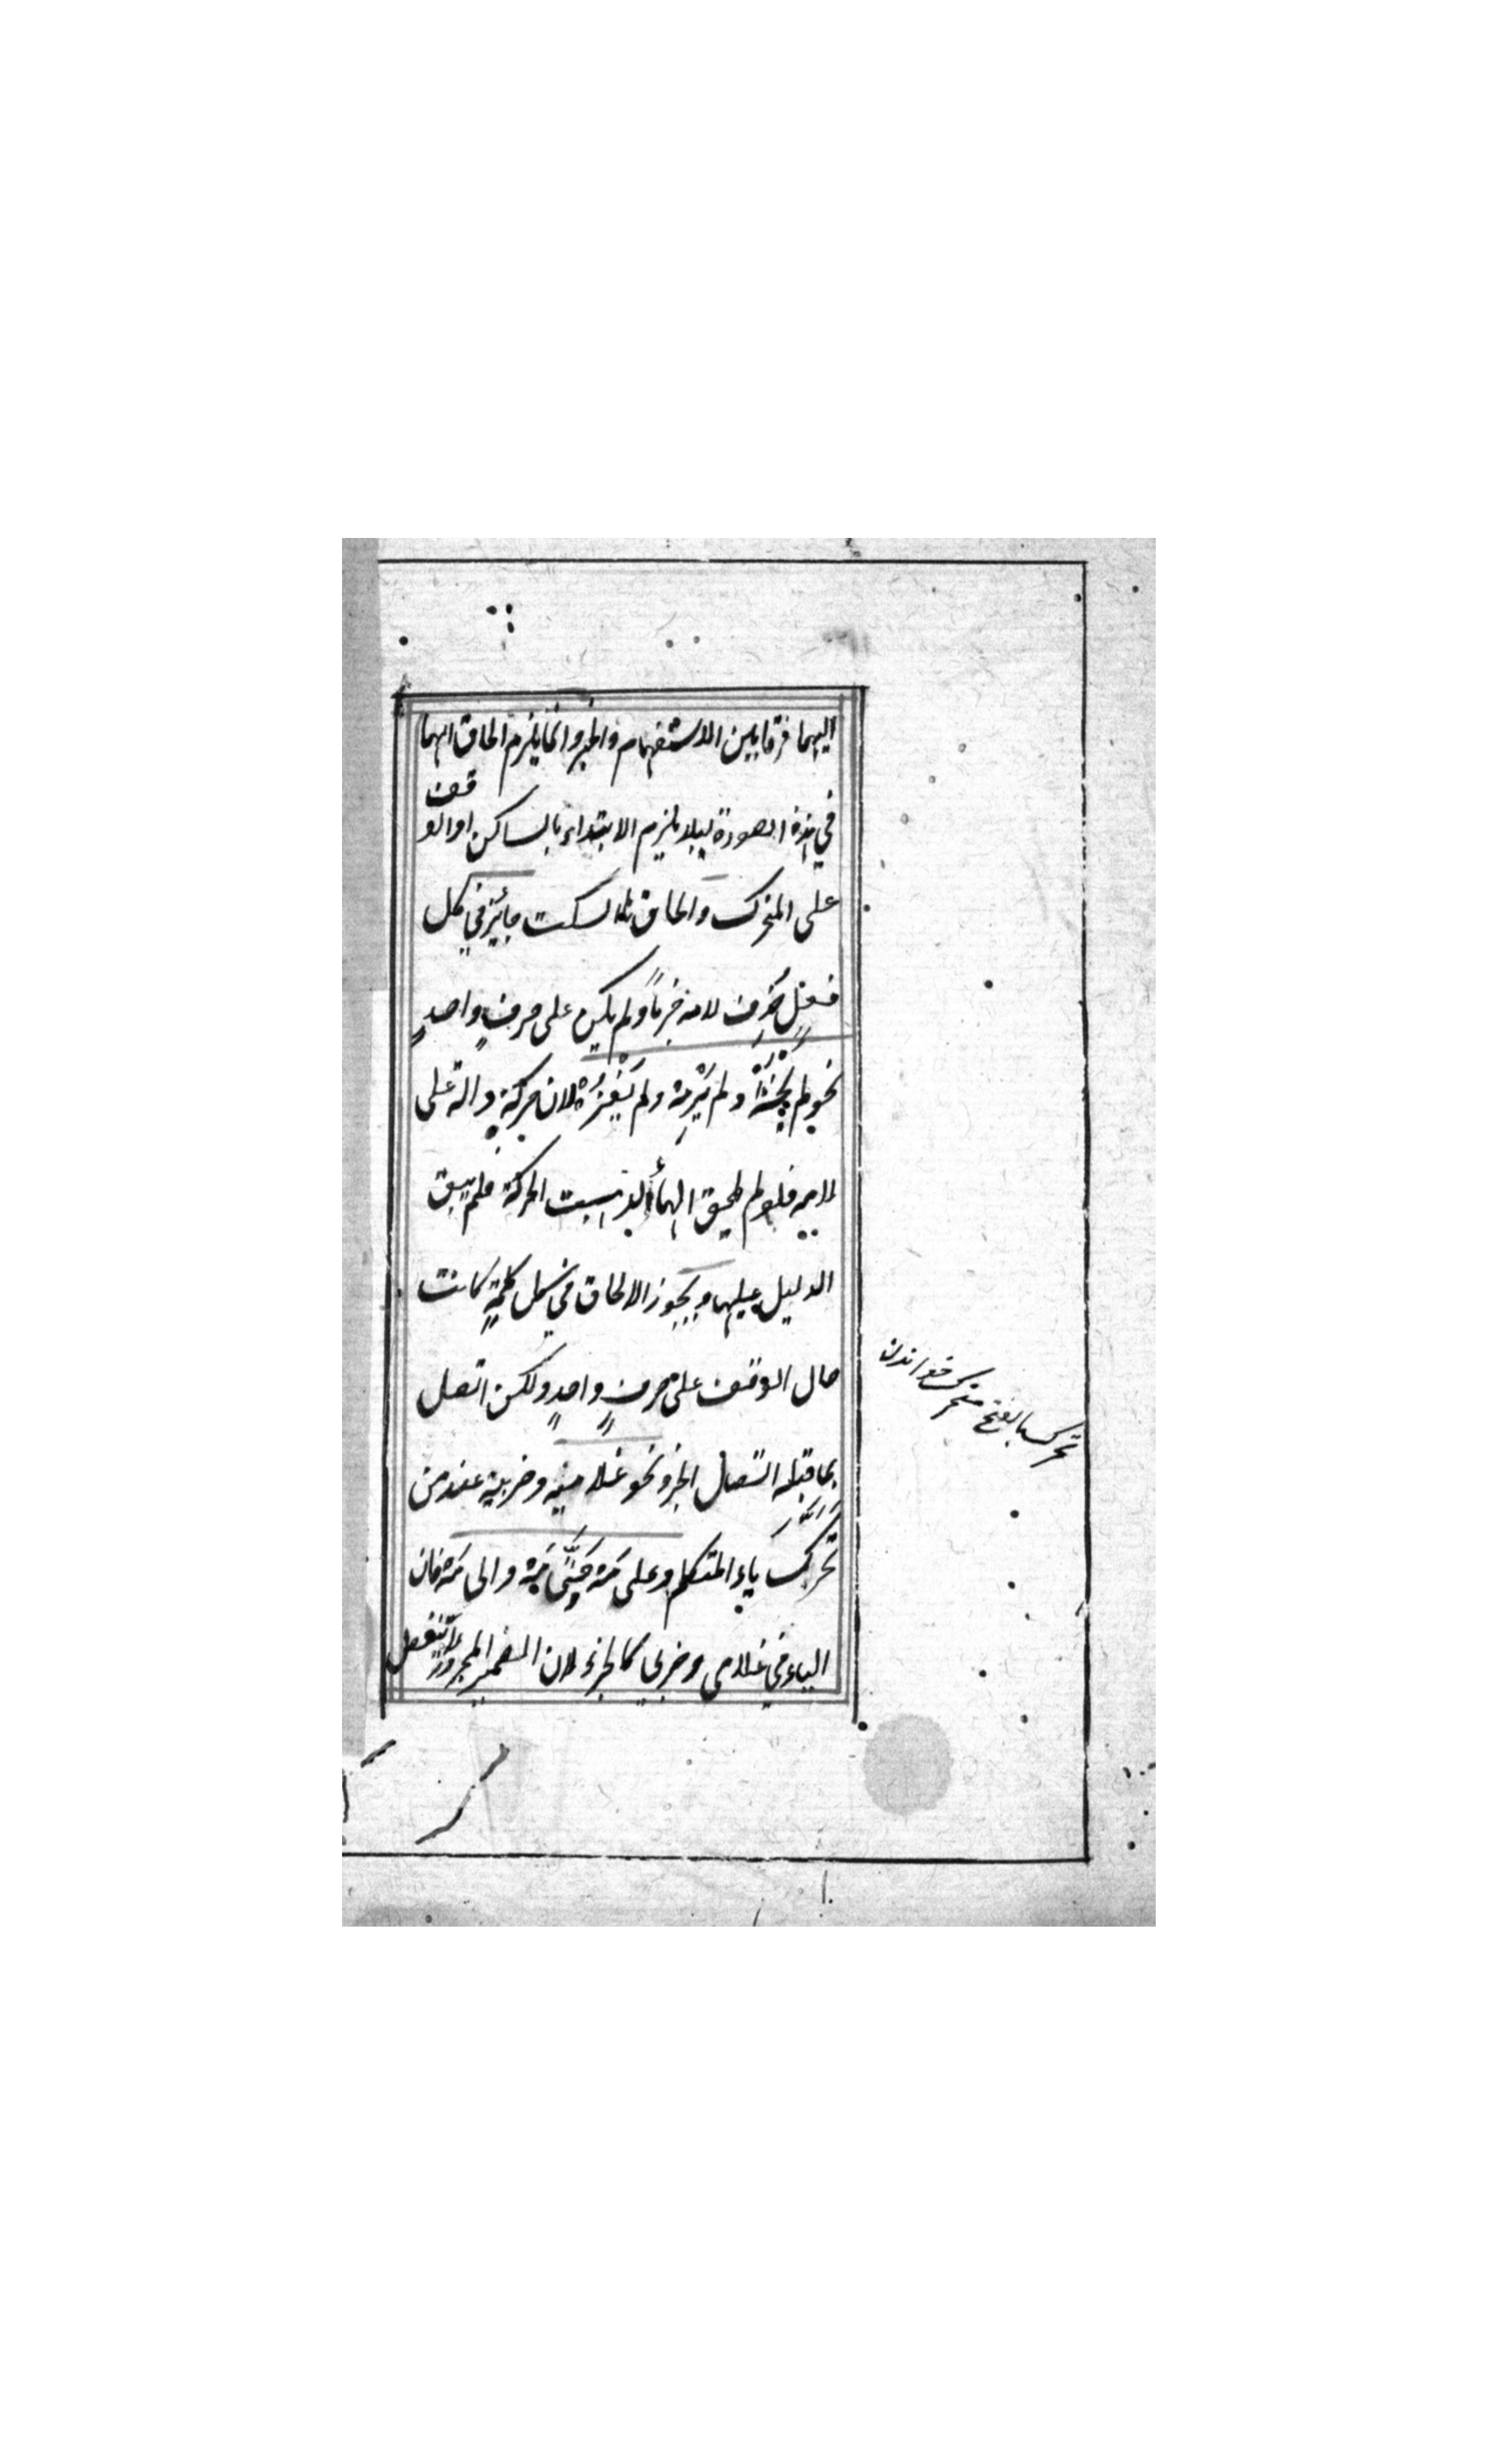 اليهما فرقا بين الاستفهام والخبر وانما يلزم الحاق الهما
في هذه الصورة ليلا يلزم الابتداء بالساكن او الوقف
على المتحرك والحاق هاء السكت جائز في كل
فعل حُذِفَ لامه جزماً ولم يكن على حرفٍ واحدٍ
نحو لم يَخْشَهْ ولم يَرْمِهْ ولم يَغْزُهْ لان حركةٍ دالة على
لامه فلو لم يلحق الهاء لذهبت الحركة فلم يبق
الدليل عليها ويجوز الالحاق في كل كلمةٍ كانت
حال الوقف على حرفٍ واحدٍ ولكن اتصل
بما قبله اتصال الجزو نحو غلاميه وضربيه عند من
تحرك ياء المتكلم وعلى مَهْ حَتّى مَهْ والى مَهْ فان
الياء في غلامي وضربي كالجزء لان الضمير المجرور لا ينفصل
تحرك بالفتح متحرك خواندن